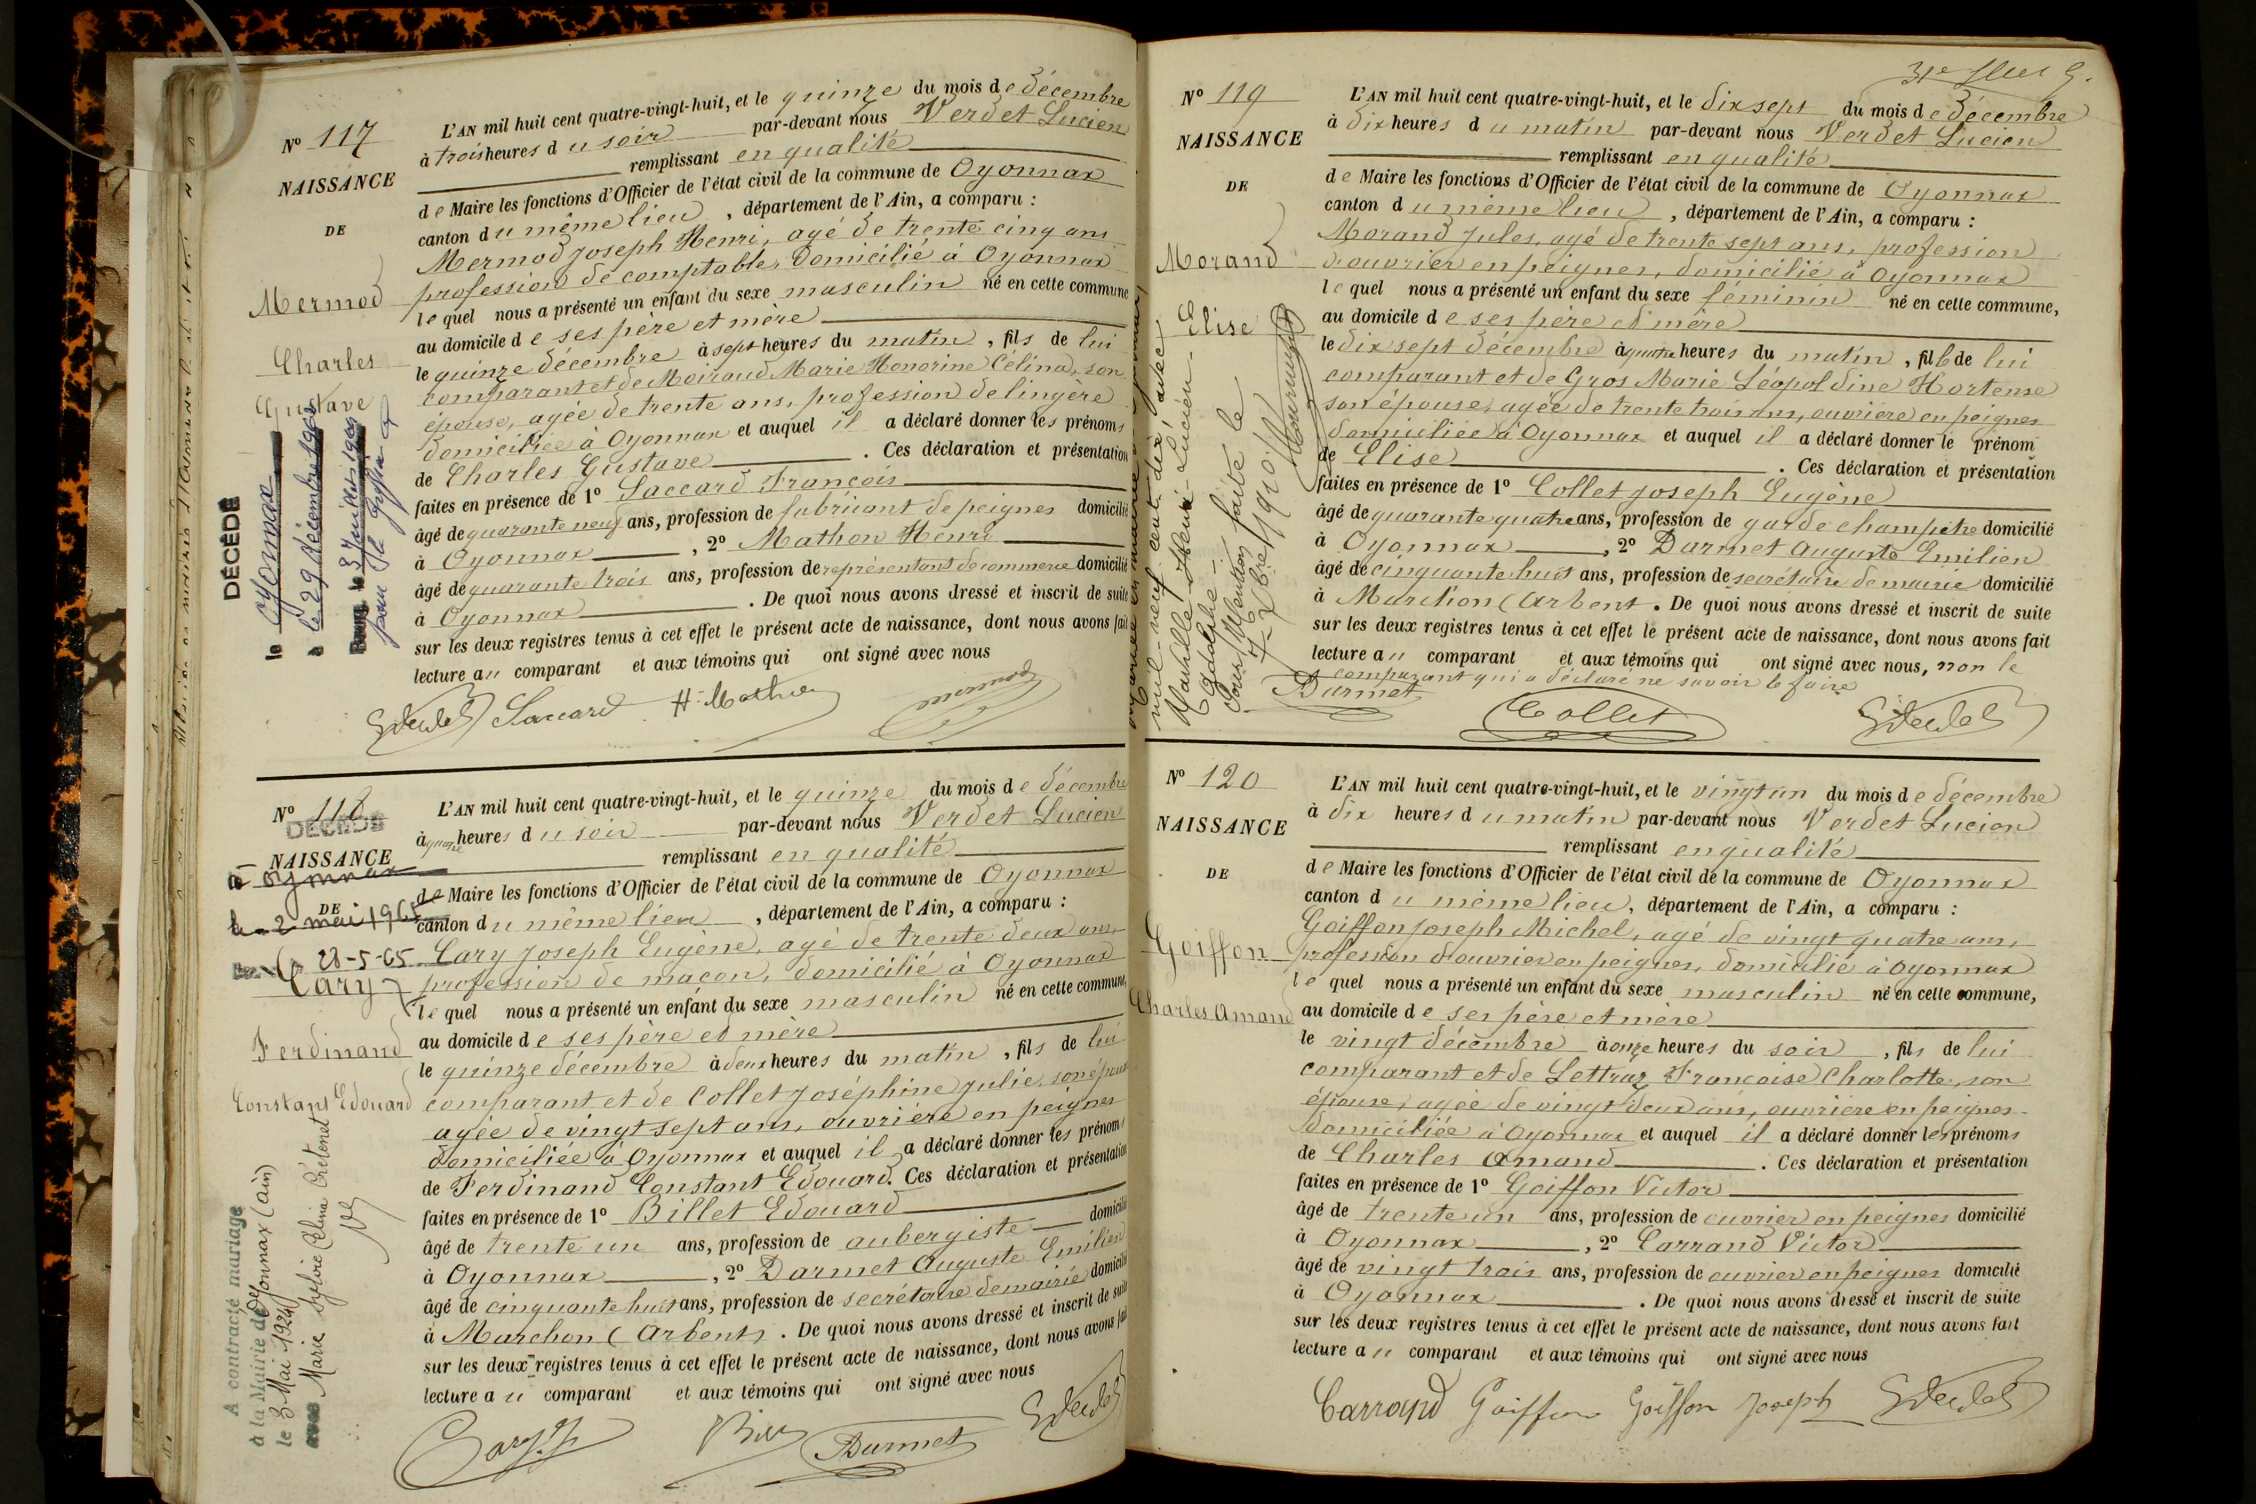 Nº 117
NAISSANCE
DE
Mermod
Charles
Gustave
DÉCÉDÉ
le Oyonnax
à le 29 décembre
pour le Greffier
L'AN mil huit cent quatre-vingt-huit, et le quinze du mois de décembre
à trois heures du soir par-devant nous Verdet Lucien
remplissant en qualité
de Maire les fonctions d'Officier de l'état civil de la commune de Oyonnax
canton du même lieu, département de l'Ain, a comparu :
Mermod Joseph Henri, agé de trente cinq ans
profession de comptable, domicilié à Oyonnax
lequel nous a présenté un enfant du sexe masculin né en cette commune
au domicile de ses père et mère
le quinze décembre à sept heures du matin, fils de lui
comparant et de Moiraud Marie Honorine Célina, son
épouse, agée de trente ans, profession de lingère
domiciliée à Oyonnax et auquel il a déclaré donner les prénoms
de Charles Gustave . Ces déclaration et présentation
faites en présence de 1º Jaccard François
âgé de quarante neuf ans, profession de fabricant de peignes domicilié
à Oyonnax , 2º Mathon Henri
âgé de quarante trois ans, profession de représentant de commerce domicilié
à Oyonnax . De quoi nous avons dressé et inscrit de suite
sur les deux registres tenus à cet effet le présent acte de naissance, dont nous avons fait
lecture au comparant et aux témoins qui ont signé avec nous
Jaccard H. Mathon Mermod
Nº 118
DÉCÉDÉ
NAISSANCE
à Oyonnax
DE
le 2 mai 1965
28-5-65
Cary
Ferdinand
Constant Edouard
A contracté mariage
à la Mairie de Oyonnax (ain)
le 3 Mai 1924
avec Marie Sylvie Célina Crétenet
L'AN mil huit cent quatre-vingt-huit, et le quinze du mois de décembre
à quatre heures du soir par-devant nous Verdet Lucien
remplissant en qualité
de Maire les fonctions d'Officier de l'état civil de la commune de Oyonnax
canton du même lieu, département de l'Ain, a comparu :
Cary Joseph Eugène, agé de trente deux ans,
profession de maçon, domicilié à Oyonnax
lequel nous a présenté un enfant du sexe masculin né en cette commune,
au domicile de ses père et mère
le quinze décembre à deux heures du matin, fils de lui
comparant et de Collet Joséphine Julie, son épouse
agée de vingt sept ans, ouvrière en peignes
domiciliée à Oyonnax et auquel il a déclaré donner les prénoms
de Ferdinand Constant Edouard. Ces déclaration et présentation
faites en présence de 1º Billet Edouard
âgé de trente un ans, profession de aubergiste domicilié
à Oyonnax , 2º Darmet Auguste Emilien
âgé de cinquante huit ans, profession de secrétaire de mairie domicilié
à Marchon (Arbent). De quoi nous avons dressé et inscrit de suite
sur les deux registres tenus à cet effet le présent acte de naissance, dont nous avons fait
lecture au comparant et aux témoins qui ont signé avec nous
Cary J. Darmet
Nº 119
NAISSANCE
DE
Morand
Elise
mil-neuf cent-dix avec
Pour Mention faite le
L'AN mil huit cent quatre-vingt-huit, et le dix sept du mois de décembre
à dix heures du matin par-devant nous Verdet Lucien
remplissant en qualité
de Maire les fonctions d'Officier de l'état civil de la commune de Oyonnax
canton du même lieu, département de l'Ain, a comparu :
Morand Jules, agé de trente sept ans, profession
d'ouvrier en peignes, domicilié à Oyonnax
lequel nous a présenté un enfant du sexe féminin né en cette commune,
au domicile de ses père et mère
le dix sept décembre à quatre heures du matin, fille de lui
comparant et de Gros Marie Léopoldine Hortense
son épouse, agée de trente trois ans, ouvrière en peignes
domiciliée à Oyonnax et auquel il a déclaré donner le prénom
de Elise . Ces déclaration et présentation
faites en présence de 1º Collet Joseph Eugène
âgé de quarante quatre ans, profession de garde champêtre domicilié
à Oyonnax , 2º Darmet Auguste Emilien
âgé de cinquante huit ans, profession de secrétaire de mairie domicilié
à Marchon (Arbent. De quoi nous avons dressé et inscrit de suite
sur les deux registres tenus à cet effet le présent acte de naissance, dont nous avons fait
lecture au comparant et aux témoins qui ont signé avec nous, non le
comparant qui a déclaré ne savoir le faire
Darmet Collet
Nº 120
NAISSANCE
DE
Goiffon
Charles Amand
L'AN mil huit cent quatre-vingt-huit, et le vingt un du mois de décembre
à dix heures du matin par-devant nous Verdet Lucien
remplissant en qualité
de Maire les fonctions d'Officier de l'état civil de la commune de Oyonnax
canton du même lieu, département de l'Ain, a comparu :
Goiffon Joseph Michel, agé de vingt quatre ans,
profession d'ouvrier en peignes, domicilié à Oyonnax
lequel nous a présenté un enfant du sexe masculin né en cette commune,
au domicile de ses père et mère
le vingt décembre à onze heures du soir, fils de lui
comparant et de Lettraz Françoise Charlotte, son
épouse, agée de vingt deux ans, ouvrière en peignes
domiciliée à Oyonnax et auquel il a déclaré donner les prénoms
de Charles Amand . Ces déclaration et présentation
faites en présence de 1º Goiffon Victor
âgé de trente un ans, profession de ouvrier en peignes domicilié
à Oyonnax , 2º Carrand Victor
âgé de vingt trois ans, profession de ouvrier en peignes domicilié
à Oyonnax . De quoi nous avons dressé et inscrit de suite
sur les deux registres tenus à cet effet le présent acte de naissance, dont nous avons fait
lecture au comparant et aux témoins qui ont signé avec nous
Carrand Goiffon Goiffon Joseph